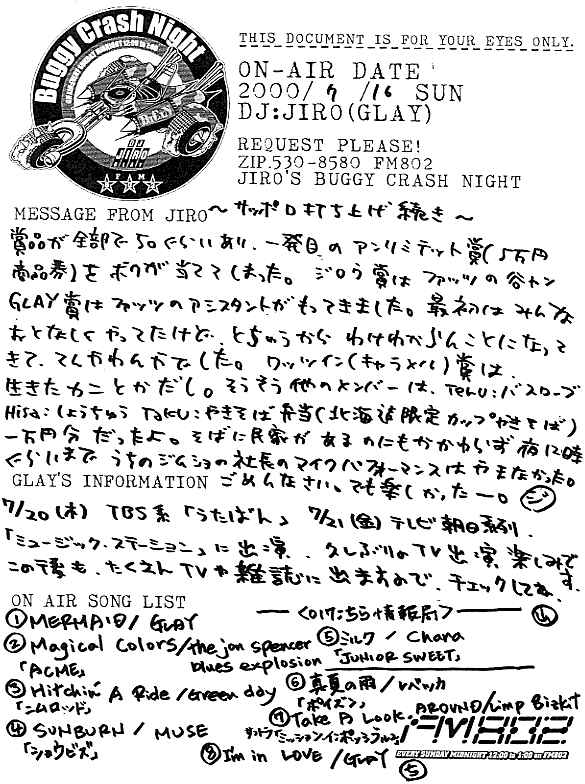 Buggy Crash Night
EVERY SUNDAY MIDNIGHT 12:00 to 1:00
DJ
JIRO
FM
802
THIS DOCUMENT IS FOR YOUR EYES ONLY.
ON-AIR DATE
2000/ 7 /16 SUN
DJ:JIRO(GLAY)
REQUEST PLEASE!
ZIP.530-8580 FM802
JIRO'S BUGGY CRASH NIGHT
MESSAGE FROM JIRO ～サッポロ打ち上げ 続き～
賞品が全部で50ぐらいあり、一発目のアンリミテット賞(5万円
商品券)をボクが当ててしまった。ジロウ賞はファッツの谷ヤン
GLAY賞はファッツのアシスタントがもってきました。最初はみんな
おとなしくやってたけど、とちゅうからわけわからんことになって
きて、てんやわんやでした。ワッツイン(キャラメル)賞は、
生きたカニとかだし。そうそう他のメンバーは、TERU:バスローブ
Hisa:しょうちゅう TAKU:やきそば弁当(北海道限定カップやきそば)
一万円分だったよ。そばに民家があるのにもかかわらず夜12時
ぐらいまでうちのジムショの社長のマイクパフォーマンスはやまなかった。
GLAY'S INFORMATION ごめんなさい。でも楽しかったー。ジ
7/20(木) TBS系「うたばん」 7/21(金)テレビ朝日系列、
「ミュージック・ステーション」に出演、久しぶりのTV出演、楽しみです。
この後も、たくさんTVや雑誌に出ますので、チェックしてね。
ON AIR SONG LIST ―〈017こちら情報局〉―
①MERMAID/GLAY
②Magical Colors/the jon spencer blues explosion
「ACME」
③Hitchin' A Ride/Green day
「ニムロッド」
④SUNBURN / MUSE
「ショウビズ」
⑤ミルク / Chara
「JUNIOR SWEET」
⑥真夏の雨/レベッカ
「ポイズン」
⑦Take A Look AROUND/Limp Bizkit
サントラ「ミッションインポッシブル2」
⑧I'm in LOVE /GLAY
FM802
EVERY SUNDAY MIDNIGHT 12:00 to 1:00 on FM802
⑤